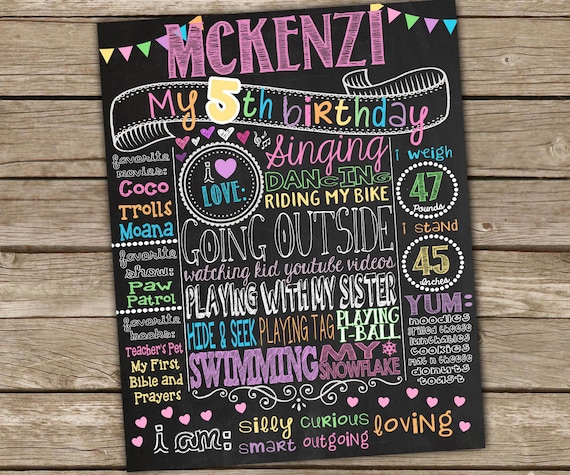 MCKENZI
My 5th birthday
favorite movies:
Coco
Trolls
Moana
favorite show:
Paw Patrol
favorite books:
Teacher's Pet
My First Bible and Prayers
i LOVE:
singing
DANCING
RIDING MY BIKE
GOING OUTSIDE
watching kid youtube videos
PLAYING WITH MY SISTER
HIDE & SEEK PLAYING TAG PLAYING T-BALL
SWIMMING MY SNOWFLAKE
i weigh
47
Pounds
i stand
45
inches
YUM:
noodles
grilled cheese
lunchables
cookies
mac n cheese
donuts
toast
i am: silly curious loving
smart outgoing